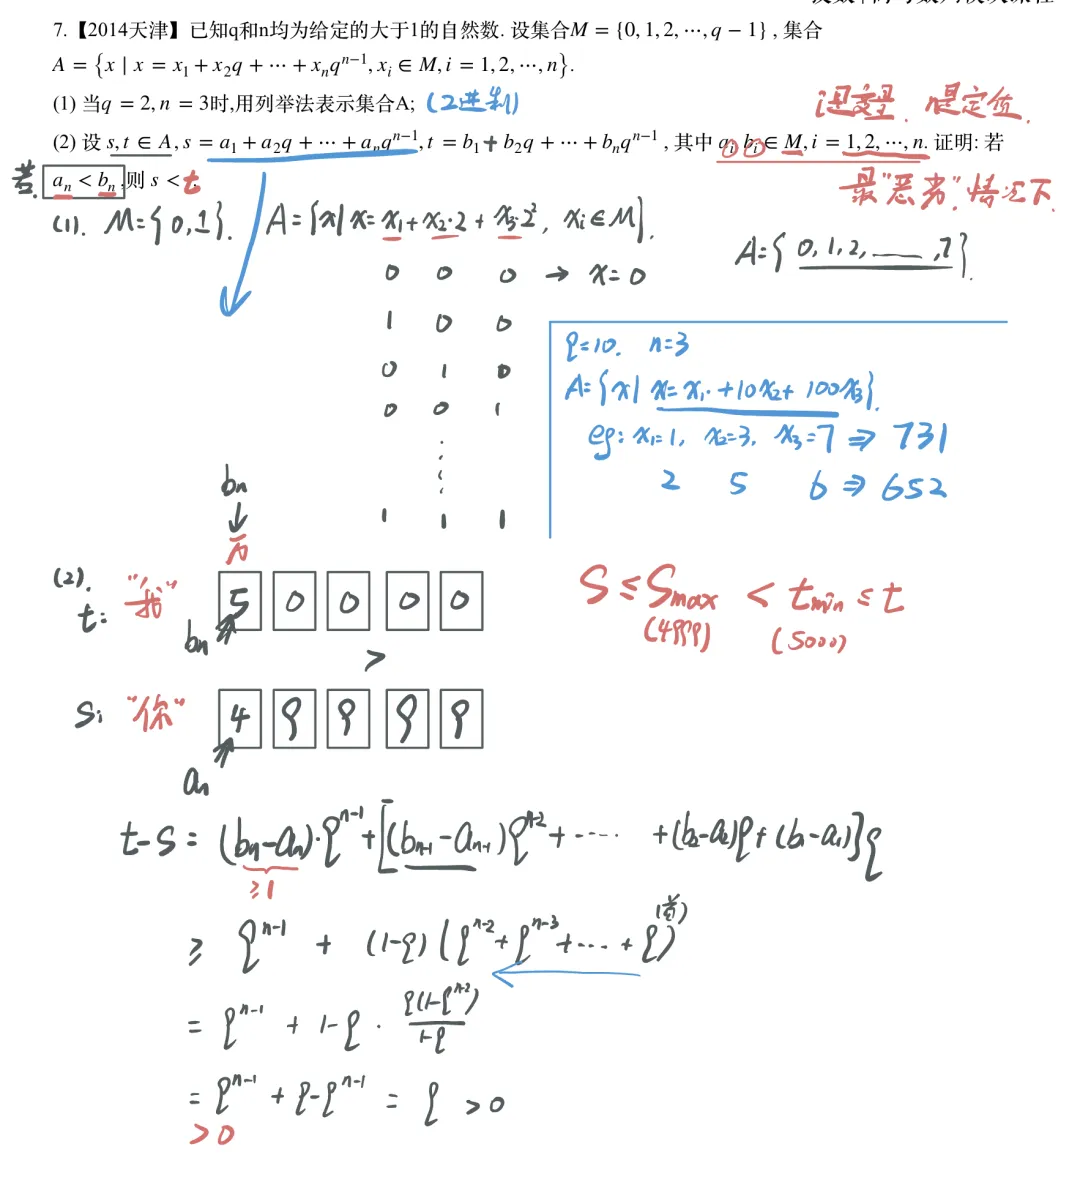 7.【2014天津】已知q和n均为给定的大于1的自然数. 设集合M = {0, 1, 2, ⋯, q − 1} , 集合
A = {x | x = x₁ + x₂q + ⋯ + xₙqⁿ⁻¹, xᵢ ∈ M, i = 1, 2, ⋯, n}.
(1) 当q = 2, n = 3时,用列举法表示集合A; (2进制)
(2) 设 s, t ∈ A, s = a₁ + a₂q + ⋯ + aₙqⁿ⁻¹, t = b₁ + b₂q + ⋯ + bₙqⁿ⁻¹ , 其中 aᵢ, bᵢ ∈ M, i = 1, 2, ⋯, n. 证明: 若
aₙ < bₙ ,则 s < t.
若.
最"恶劣".情况下
(1). M={0,1}. A={x|x=x₁+x₂·2+x₃·2², xᵢ∈M}.
A={0,1,2,——,7}.
0 0 0 → x=0
1 0 0
0 1 0
0 0 1
1 1 1
q=10. n=3
A={x| x=x₁·+10x₂+100x₃}.
eg: x₁=1, x₂=3, x₃=7 ⇒ 731
2 5 6 ⇒ 652
bₙ
↓
(2).
t: "我" 5 0 0 0 0
bₙ
>
s: "你" 4 9 9 9 9
aₙ
S ≤ Smax < tmin ≤ t
(4999) (5000)
t-s = (bₙ-aₙ)·qⁿ⁻¹+[(bₙ₋₁-aₙ₋₁)qⁿ⁻²+⋯⋯+(b₂-a₂)q+(b₁-a₁)]q
≥1
≥ qⁿ⁻¹ + (1-q)(qⁿ⁻²+qⁿ⁻³+⋯+q) (首)
= qⁿ⁻¹ + 1-q · q(1-qⁿ⁻²)/1-q
= qⁿ⁻¹ + q-qⁿ⁻¹ = q >0
>0